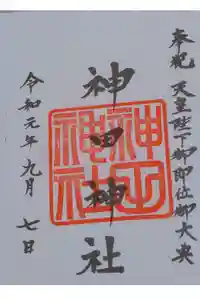 奉祝 天皇陛下御即位御大典
神田神社
神田神社
令和元年九月七日